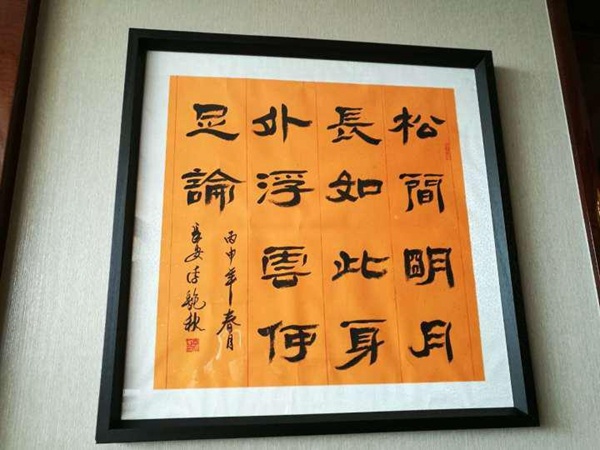 松間明月
長如此身
外浮雲何
足論
丙申年春月
長安